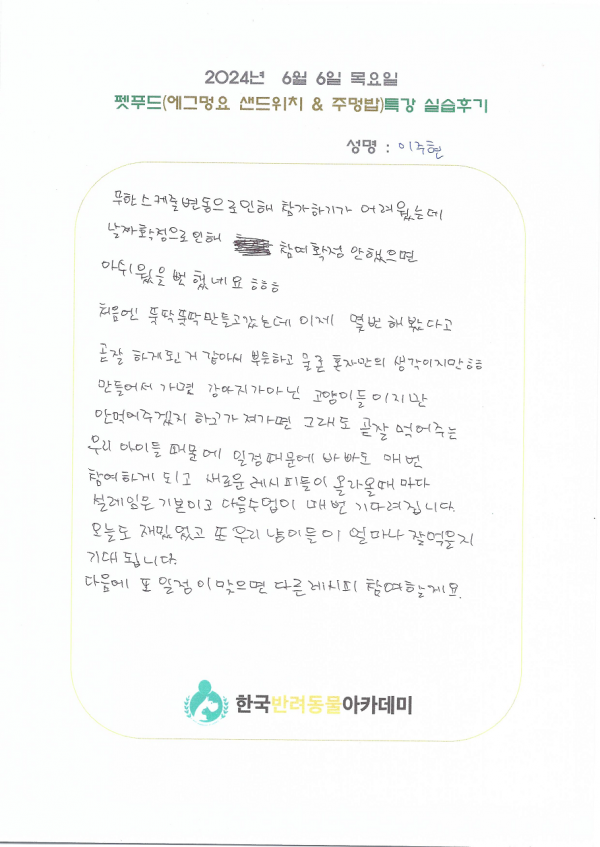 2024년 6월 6일 목요일
펫푸드(에그멍요 샌드위치 & 주멍밥)특강 실습후기
성명 : 이주현
무한스케줄변동으로인해 참가하기가 어려웠는데
날짜확정으로인해 참여확정 안했으면
아쉬웠을뻔 했네요 ㅎㅎㅎ
처음엔 뚯딱뚯딱만들고갔는데 이제 몇번 해봤다고
곧잘 하게된거 같아서 뿌듯하고 물론 혼자만의 생각이지만ㅎㅎ
만들어서 가면 강아지가아닌 고양이들이지만
안먹어주겠지 하고가져가면 그래도 곧잘 먹어주는
우리 아이들 때문에 일정때문에 바빠도 매번
참여하게 되고 새로운레시피들이 올라올때 마다
설레임은 기본이고 다음수업이 매번 기다려집니다.
오늘도 재밌었고 또 우리 냥이들이 얼마나 잘먹을지
기대 됩니다.
다음에 또 일정이맞으면 다른레시피 참여할게요.
한국반려동물아카데미